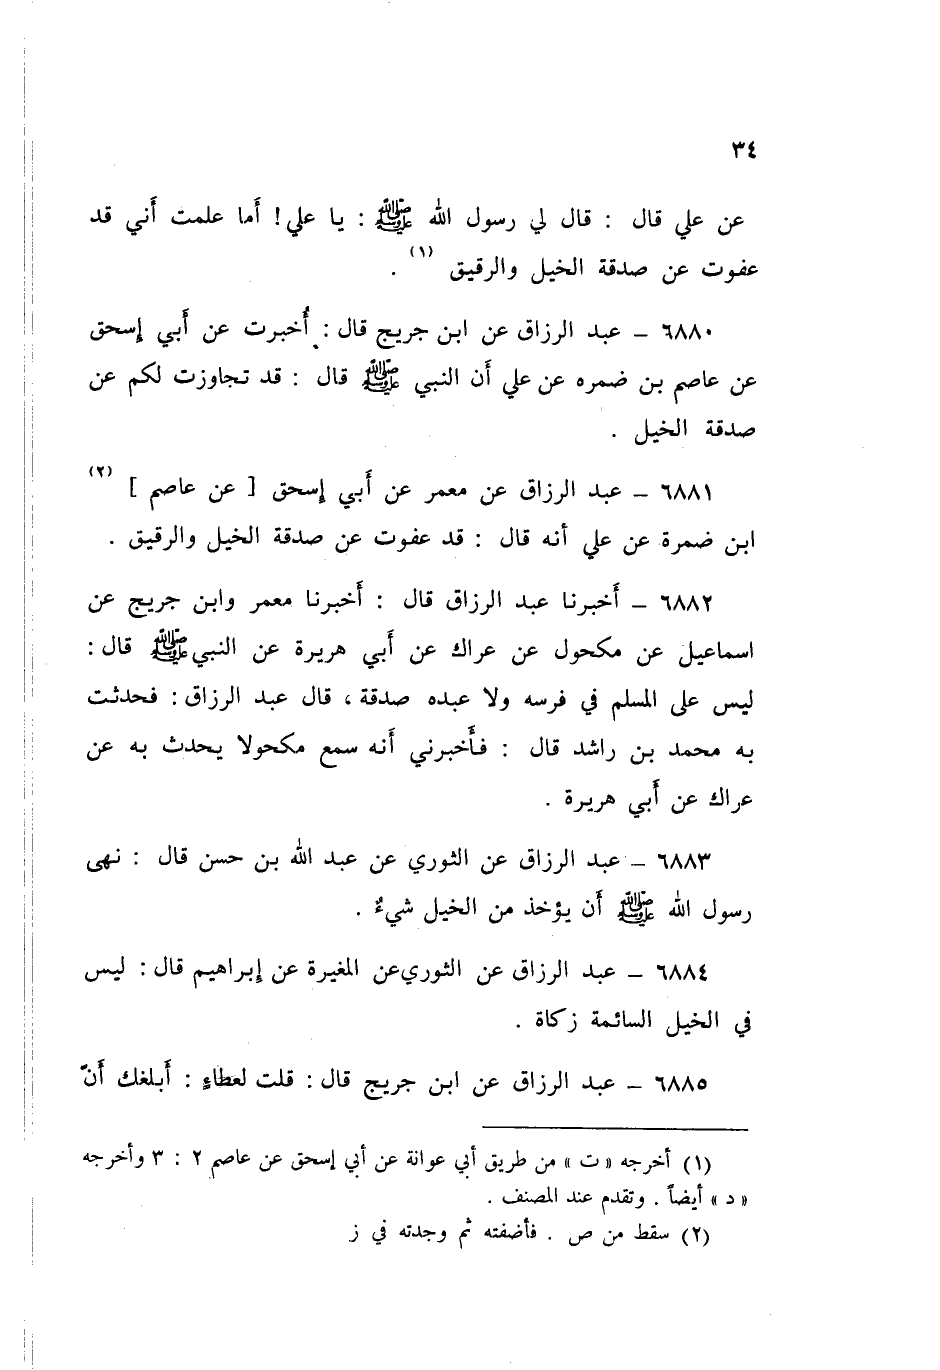 ٣٤
عن علي قال : قال لي رسول الله ﷺ : يا علي! أَما علمت أَني قد
عفوت عن صدقة الخيل والرقيق (١) .
٦٨٨٠ – عبد الرزاق عن ابن جريج قال : أُخبرت عن أَبي إسحق
عن عاصم بن ضمره عن علي أَن النبي ﷺ قال : قد تجاوزت لكم عن
صدقة الخيل .
٦٨٨١ – عبد الرزاق عن معمر عن أَبي إسحق [ عن عاصم ] (٢)
ابن ضمرة عن علي أنه قال : قد عفوت عن صدقة الخيل والرقيق .
٦٨٨٢ – أَخبرنا عبد الرزاق قال : أَخبرنا معمر وابن جريج عن
اسماعيل عن مكحول عن عراك عن أَبي هريرة عن النبي ﷺ قال :
ليس على المسلم في فرسه ولا عبده صدقة ، قال عبد الرزاق : فحدثت
به محمد بن راشد قال : فأَخبرني أَنه سمع مكحولا يحدث به عن
عراك عن أَبي هريرة .
٦٨٨٣ – عبد الرزاق عن الثوري عن عبد الله بن حسن قال : نهى
رسول الله ﷺ أَن يؤخذ من الخيل شيءٌ .
٦٨٨٤ – عبد الرزاق عن الثوري عن المغيرة عن إبراهيم قال : ليس
في الخيل السائمة زكاة .
٦٨٨٥ – عبد الرزاق عن ابن جريج قال : قلت لعطاءٍ : أَبلغك أَنّ
(١) أخرجه «ت» من طريق أبي عوانة عن أبي إسحق عن عاصم ٢ : ٣ وأخرجه
«د» أيضاً . وتقدم عند المصنف .
(٢) سقط من ص . فأضفته ثم وجدته في ز